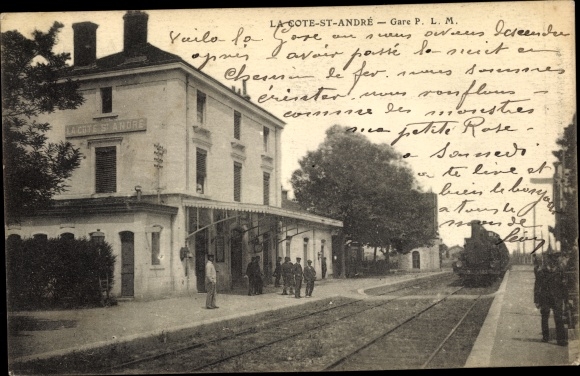 LA COTE-ST-ANDRÉ — Gare P. L. M.
Voila la Gare ou nous avons descendu
après avoir passé la nuit en
Chemin de fer. nous sommes
éreinter. nous ronflons
comme des monstres
ma petite Rose
a Samedi
a te lire et
bien le bonjour
a tous le
monde
LA COTE ST ANDRE